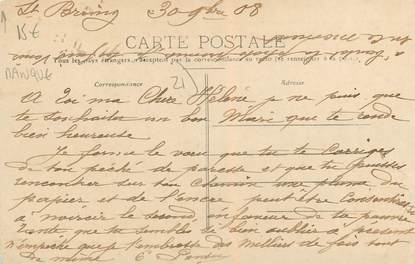 St Brieuc 30 9bre 08
15€
CARTE POSTALE
Tous les pays étrangers n'acceptent pas la correspondance au recto (se renseigner à la poste)
MANQUE
21
Correspondance
Adresse
A toi ma Chère Hélène je ne puis que
te souhaiter un bon Mari que te rende
bien heureuse
Je forme le vœu que tu te Corriges
de ton péché de paresse et que tu puisses
rencontrer sur ton Chemin une plume du
papier et de l'encre peut être Consentiras
à noircir le second en faveur de ta pauvre
tante que tu sembles si bien oublier à présent
n'empêche que je t'embrasse des milliers de fois tout
de même